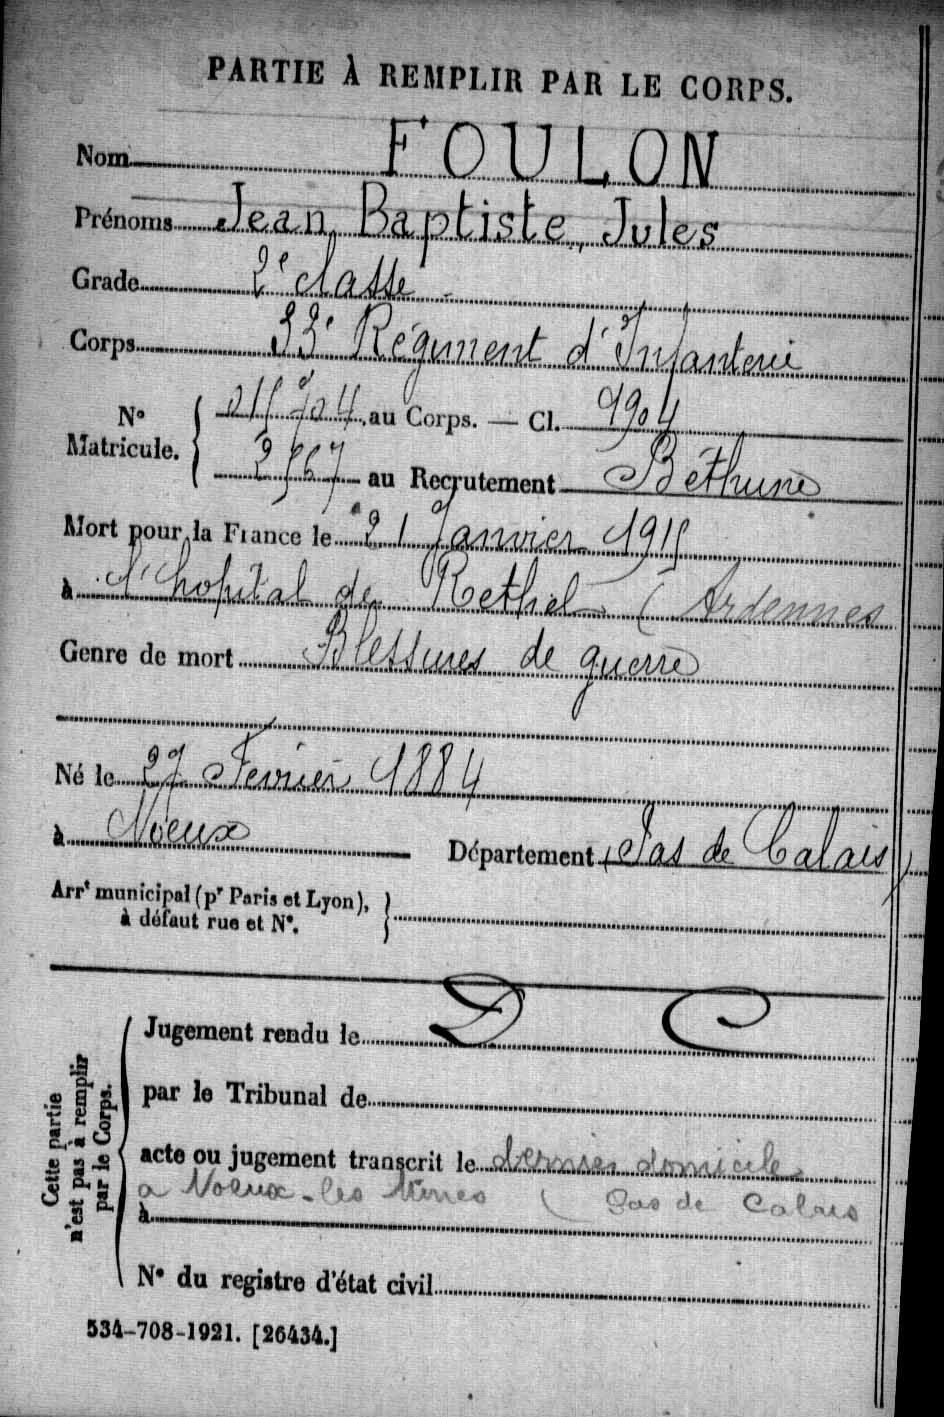 PARTIE À REMPLIR PAR LE CORPS.
Nom FOULON
Prénoms Jean Baptiste, Jules
Grade 2e classe
Corps 33e Régiment d'Infanterie
No Matricule. { au Corps. — Cl. 1904
2567 au Recrutement Béthune
Mort pour la France le 21 Janvier 1915
à l'hopital de Rethel (Ardennes
Genre de mort Blessures de guerre
Né le 27 Février 1884
à Noeux Département (Pas de Calais)
Arrt municipal (pr Paris et Lyon), }
à défaut rue et No.
D C
Cette partie n'est pas à remplir par le Corps.
Jugement rendu le
par le Tribunal de
acte ou jugement transcrit le dernier domicile
a Noeux-les Mines (Pas de Calais
à
No du registre d'état civil
534-708-1921. [26434.]